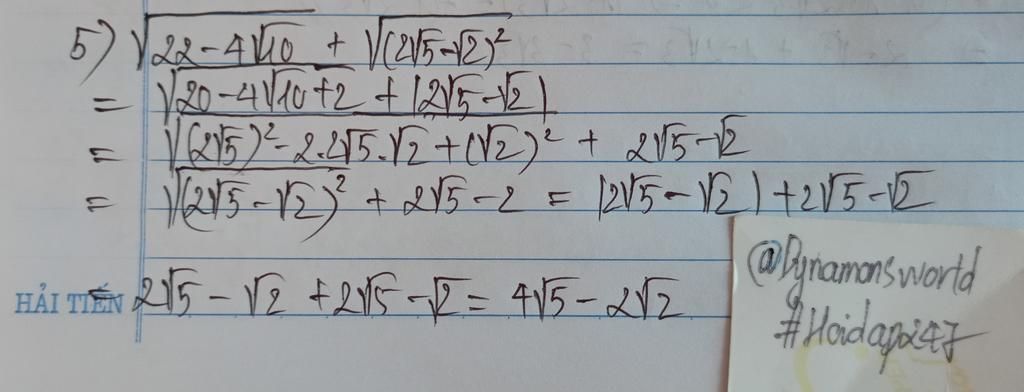 5) √(22-4√10) + √((2√5-√2)²)
= √(20-4√10+2) + |2√5-√2|
= √((2√5)²-2.2√5.√2+(√2)²) + 2√5-√2
= √((2√5-√2)²) + 2√5-2 = |2√5-√2|+2√5-√2
HẢI TIẾN
= 2√5-√2+2√5-√2 = 4√5-2√2
@Dynamonsworld
#Hoidap247